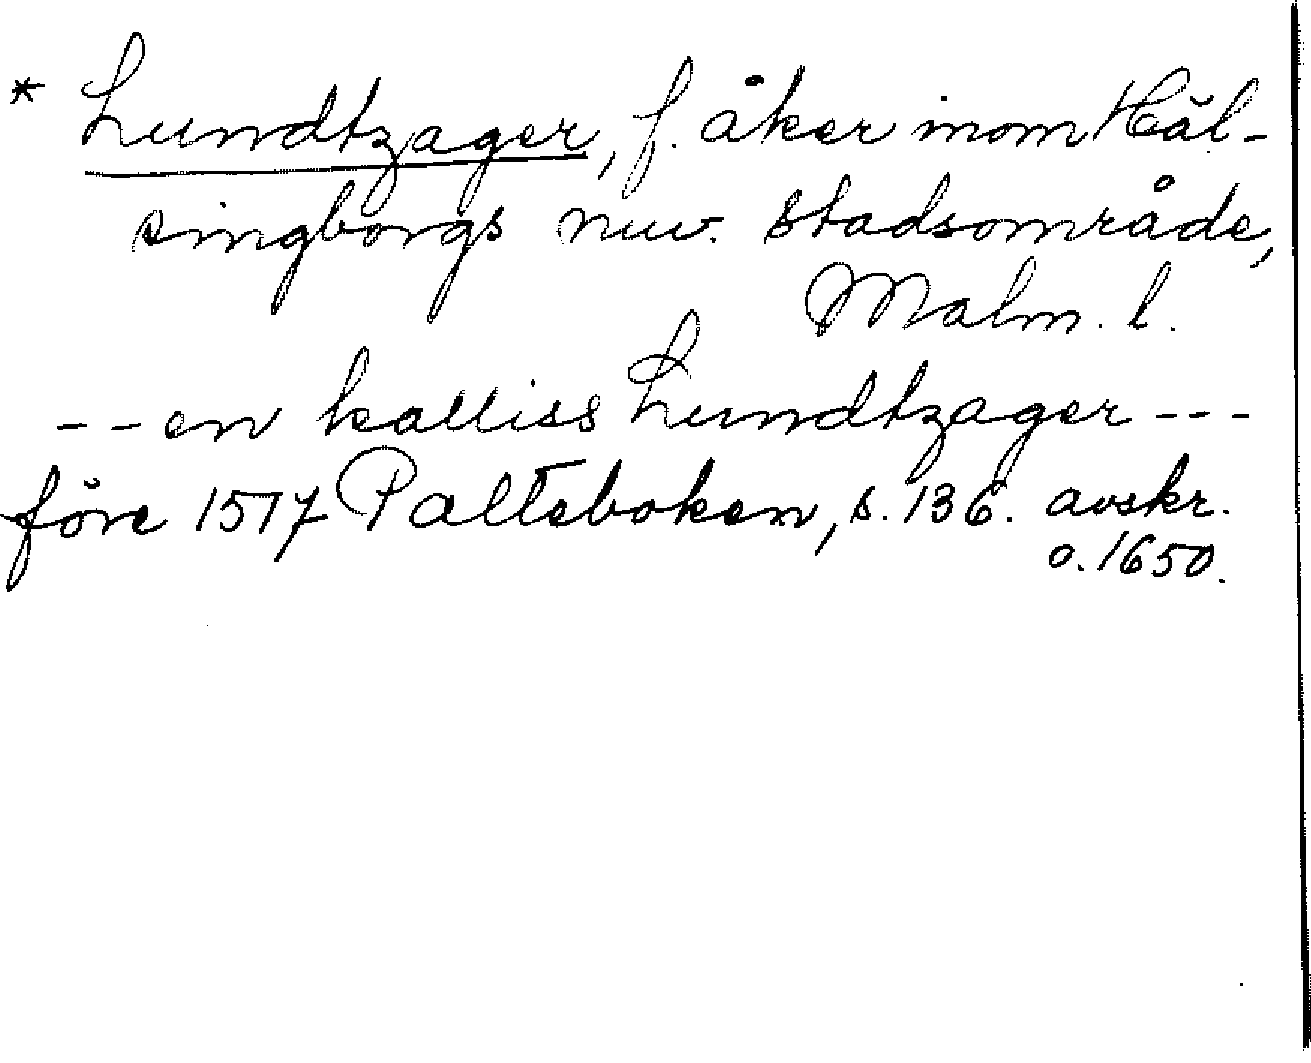 * Lundtzager, f. åker inom Häl-
singborgs nuv. stadsområde,
Malm. l.
-- en kalliss Lundtzager ---
före 1517 Palteboken, s. 136. avskr.
o. 1650.